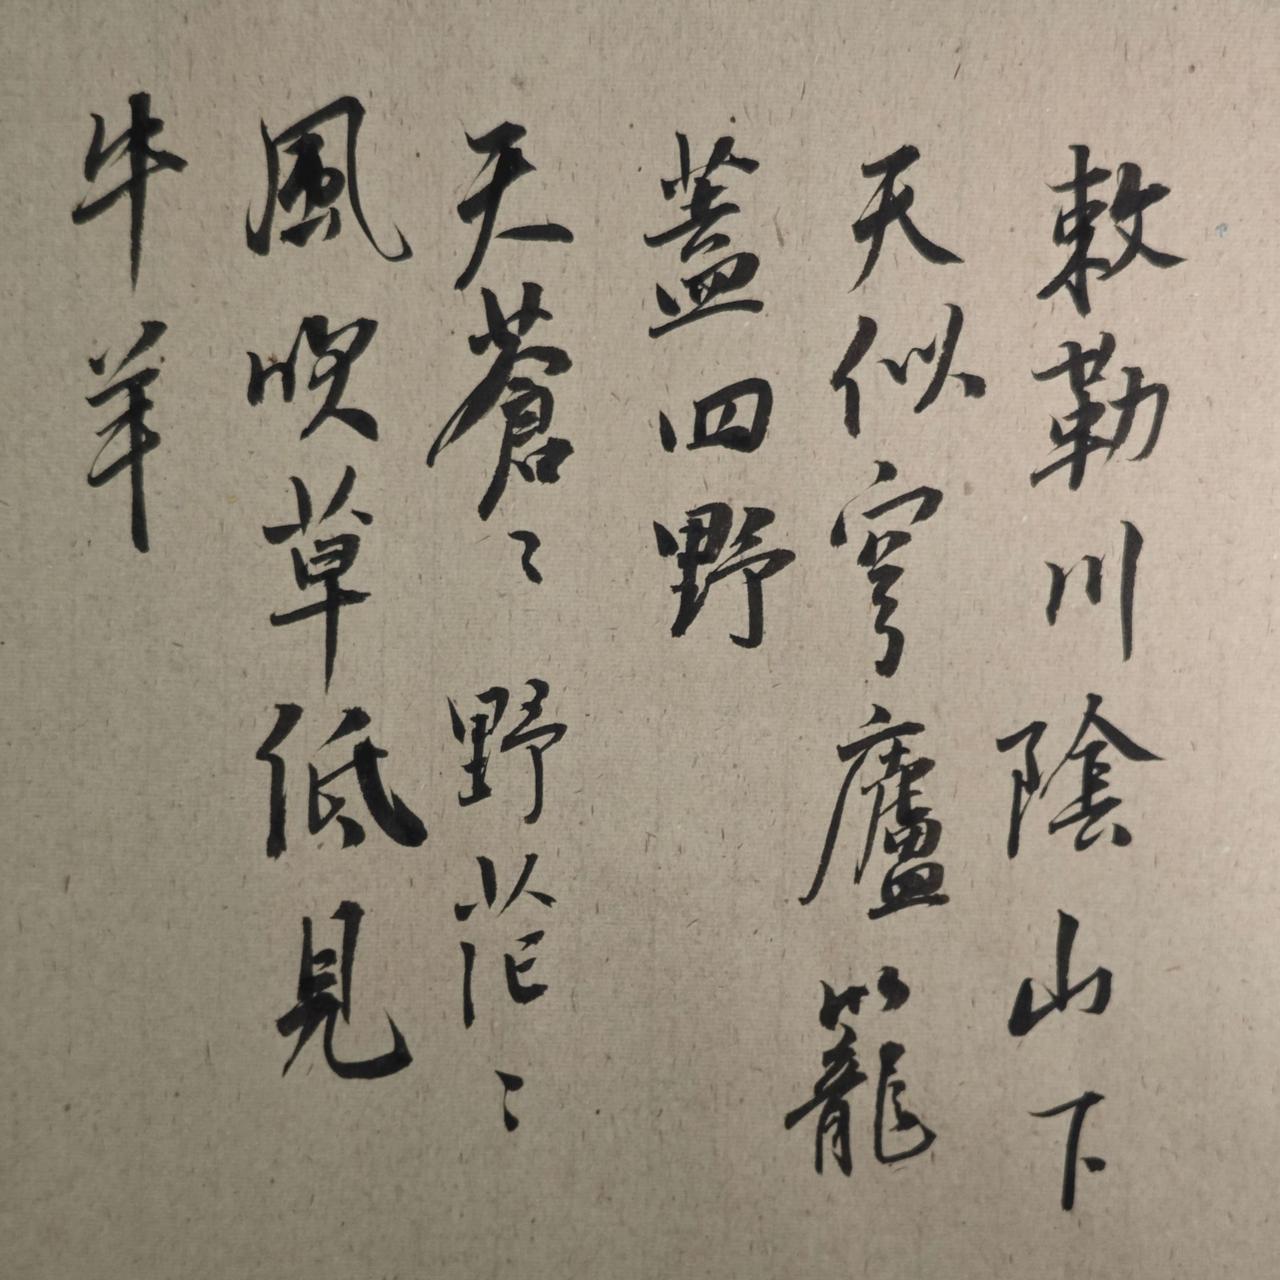 敕勒川陰山下
天似穹廬籠
蓋四野
天蒼〻野茫〻
風吹草低見
牛羊